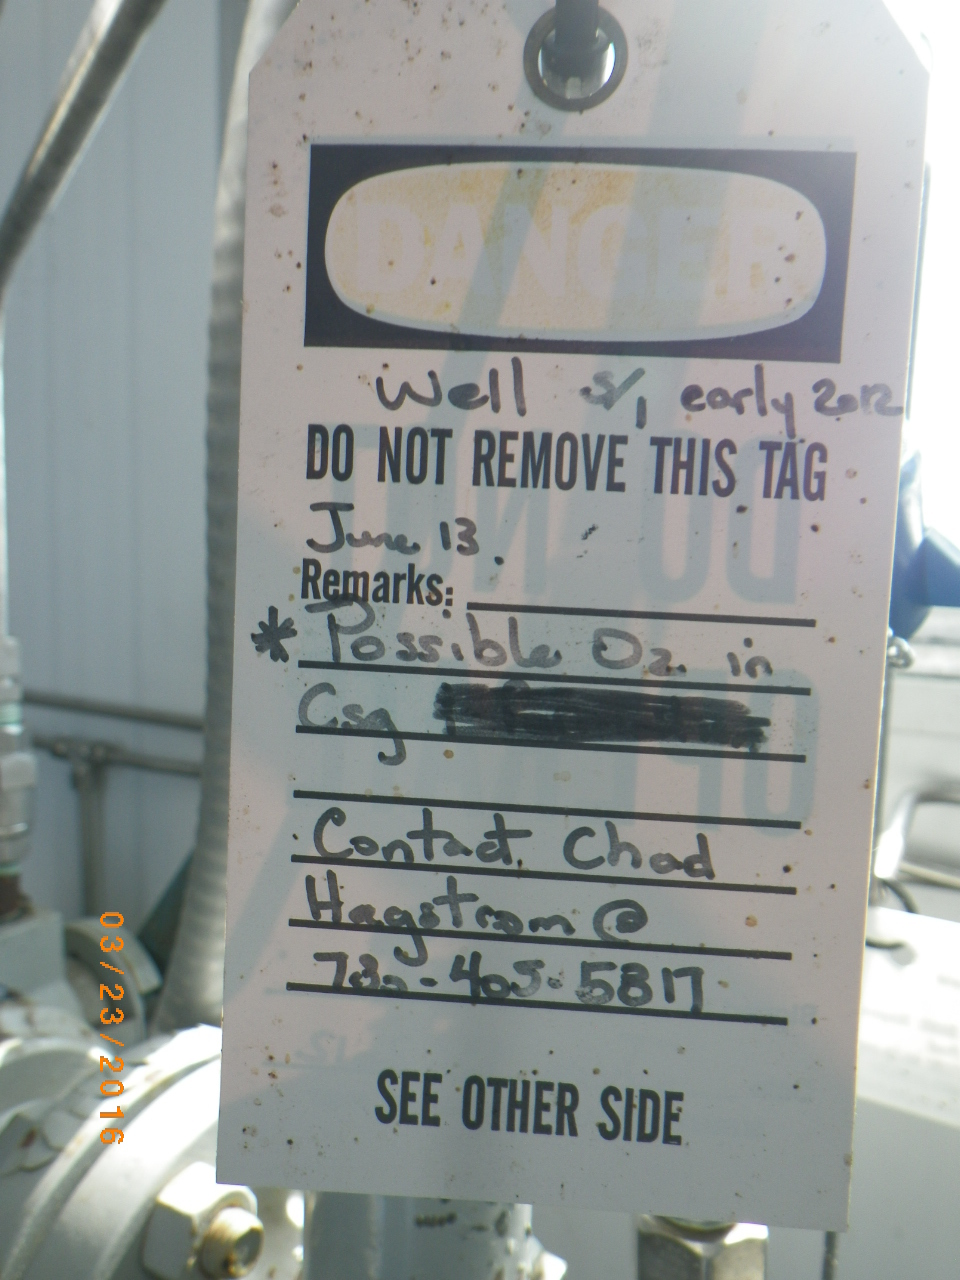 DANGER
Well S/I early 2012
DO NOT REMOVE THIS TAG
June 13.
Remarks:
* Possible O2 in
Csg
Contact Chad
Hagstrom @
780-405-5817
SEE OTHER SIDE
03/23/2016